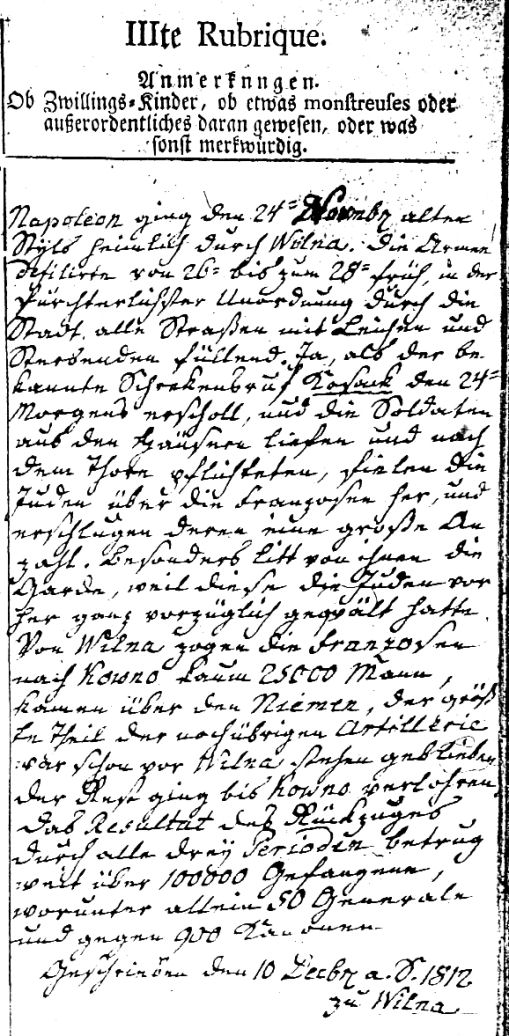 IIIte Rubrique.
Anmerknngen.
Ob Zwillings-Kinder, ob etwas monstreuses oder
außerordentliches daran gewesen, oder was
sonst merkwürdig.
Napoleon ging den 24= Novembr alten
Styls heimlich durch Wilna. Die Armee
defilirte von 26= bis zum 28= früh, in der
fürchterlichster Unordnung durch die
Stadt, alle Straßen mit Leichen und
Sterbenden füllend. Ja, als der be-
kannte Schrekensruf Kosack den 24=
Morgens erscholl, und die Soldaten
aus den Häusern liefen und nach
dem Thore flichteten, fielen die
Juden über die Franzosen her, und
erschlugen deren eine große An
zahl. Besonders litt von ihnen die
Garde, weil diese die Juden vor
her ganz vorzüglich gequält hatte.
Von Wilna zogen die Franzosen
nach Kowno kaum 25000 Mann,
kamen über den Niemen, der größ
te Theil der noch übrigen Artillerie
war schon vor Wilna stehen geblieben,
der Rest ging bis Kowno verlohren.
Das Resultat des Rückzuges
durch alle drey Perioden betrug
weit über 100000 Gefangene,
worunter allein 50 Generale
und gegen 900 Kanonen.
Geschrieben den 10 Decbr a. S. 1812
zu Wilna